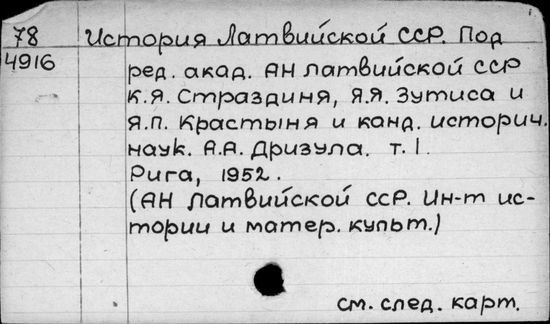 78 История Латвийской ССР. Под
4916 ред. акад. АН Латвийской ССР
К.Я. Страздиня, Я.Я. Зутиса и
Я.П. Крастыня и канд. историч.
наук. А.А. Дризула. т. I.
Рига, 1952.
(АН Латвийской ССР. Ин-т ис-
тории и матер. культ.)
см. след. карт.